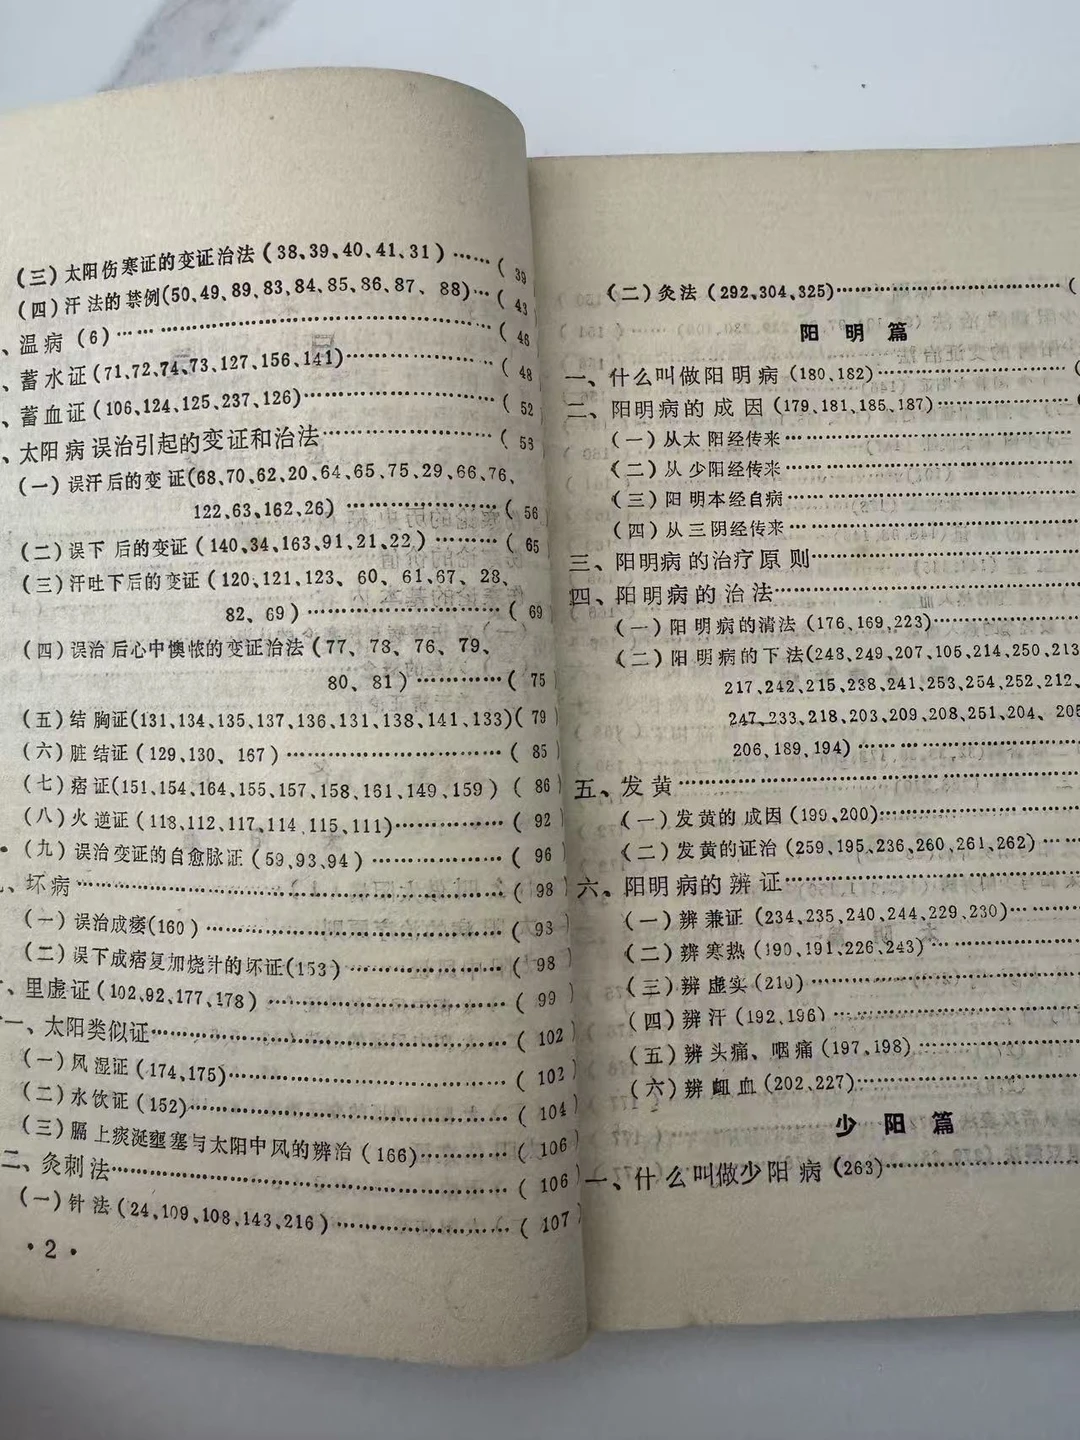 (三)太阳伤寒证的变证治法(38、39、40、41、31)……(39
(四)汗法的禁例(50、49、89、83、84、85、86、87、88)…(43
、温病(6)……(46
、蓄水证(71、72、74、73、127、156、141)……(48
、蓄血证(106、124、125、237、126)……(52
、太阳病误治引起的变证和治法……(53
(一)误汗后的变证(68、70、62、20、64、65、75、29、66、76、
122、63、162、26)……(56
(二)误下后的变证(140、34、163、91、21、22)……(65
(三)汗吐下后的变证(120、121、123、60、61、67、28、
82、69)……(69
(四)误治后心中懊憹的变证治法(77、78、76、79、
80、81)……(75
(五)结胸证(131、134、135、137、136、131、138、141、133)(79
(六)脏结证(129、130、167)……(85
(七)痞证(151、154、164、155、157、158、161、149、159)(86
(八)火逆证(118、112、117、114、115、111)……(92
(九)误治变证的自愈脉证(59、93、94)……(96
、坏病……(98
(一)误治成痿(160)……(93
(二)误下成痞复加烧针的坏证(153)……(98
、里虚证(102、92、177、178)……(99
一、太阳类似证……(102
(一)风湿证(174、175)……(102
(二)水饮证(152)……(104
(三)膈上痰涎壅塞与太阳中风的辨治(166)……(106
二、灸刺法……(106
(一)针法(24、109、108、143、216)……(107
·2·
(二)灸法(292、304、325)……(
阳明篇
一、什么叫做阳明病(180、182)……(
二、阳明病的成因(179、181、185、187)……(
(一)从太阳经传来……
(二)从少阳经传来……
(三)阳明本经自病……
(四)从三阴经传来……
三、阳明病的治疗原则……
四、阳明病的治法……
(一)阳明病的清法(176、169、223)……
(二)阳明病的下法(248、249、207、105、214、250、213
217、242、215、238、241、253、254、252、212、
247、233、218、203、209、208、251、204、205
206、189、194)……
五、发黄……
(一)发黄的成因(199、200)……
(二)发黄的证治(259、195、236、260、261、262)……
六、阳明病的辨证……
(一)辨兼证(234、235、240、244、229、230)……
(二)辨寒热(190、191、226、243)……
(三)辨虚实(210)……
(四)辨汗(192、196)……
(五)辨头痛、咽痛(197、198)……
(六)辨衄血(202、227)……
少阳篇
一、什么叫做少阳病(263)……